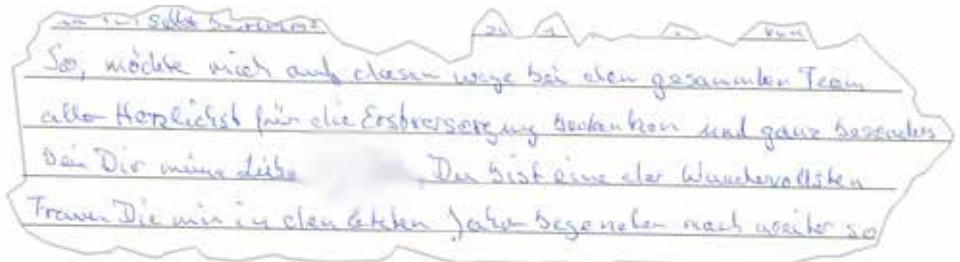 selbst
So, möchte mich auf diesen wege bei den gesammten Team
aller Herzlichst für die Erstversorgung bedanken und ganz besonders
bei Dir meine Liebe Du bist eine der Wundervollsten
Frauen Die mir in den letzten Jahren begeneten mach weiter so